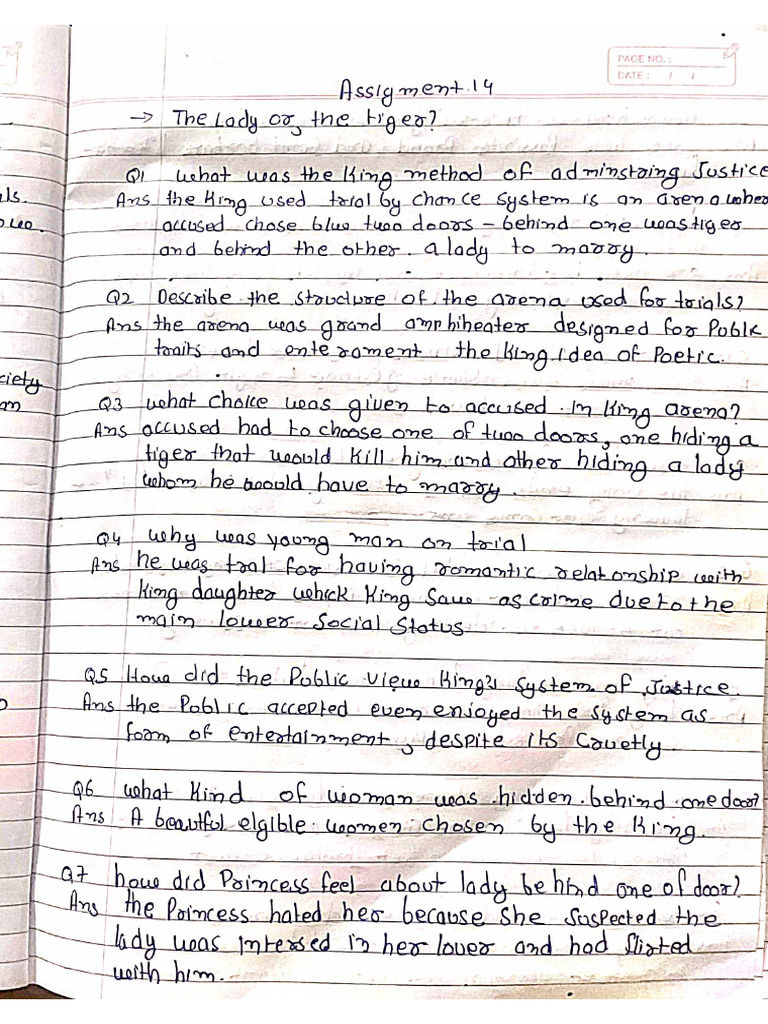 PAGE NO.:
DATE: / /
Assigment.14
→ The Lady or, the tiger?
Q1 what was the King method of adminstring Justice
Ans the King used trial by chance system is an arena wher
accused chose blue two doors - behind one was tiger
and behind the other. a lady to marry.
Q2 Describe the structure of the arena used for trials?
Ans the arena was grand amphiheater designed for Publk
traits and enteroment the King idea of Poetic.
Q3 what choice was given to accused in King arena?
Ans accused had to choose one of two doors, one hiding a
tiger that would kill him and other hiding a lady
whom he would have to marry.
Q4 why was young man on trial
Ans he was tral for having romantic relationship with
King daughter which King Saw as crime due to the
main lower Social Status
Q5 How did the Public view King's System of Justice.
Ans the Public accepted even enjoyed the System as
form of entertainment, despite its Cruetly
Q6 what Kind of woman was hidden behind one door?
Ans A beautful elgible women chosen by the King.
Q7 how did Princess feel about lady behind one of door?
Ans the Princess hated her because She Suspected the
lady was intersed in her lover and had flirted
with him.
als.
ciety
an